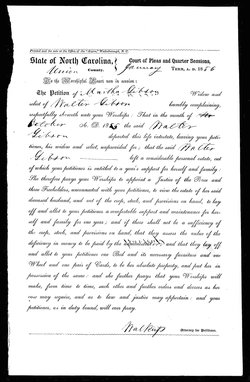 State of North Carolina,
Court of Pleas and Quarter Sessions,
Union County.
January TERM, A. D. 1856
To the Worshipful Court now in session:
The Petition of Martha Gibson Widow and
relict of Walter Gibson humbly complaining,
respectfully sheweth unto your Worships: That in the month of
October A. D. 1855 the said Walter
Gibson departed this life intestate, leaving your petitioner,
his widow and relict, unprovided for; that the said Walter
Gibson left a considerable personal estate, out
of which your petitioner is entitled to a year's support for herself and family:
She therefore prays your Worships to appoint a Justice of the Peace and
three Freeholders, unconnected with your petitioner, to view the estate of her said
deceased husband, and out of the crop, stock, and provisions on hand, to lay
off and allot to your petitioner a comfortable support and maintenance for her-
self and family for one year: and if there shall not be a sufficiency of the
crop, stock, and provisions on hand, that they assess the value of the
deficiency in money to be paid by the and that they lay off
and allot to your petitioner one Bed and its necessary furniture and one
Wheel and one pair of Cards, to be her absolute property, and put her in
possession of the same: and she further prays that your Worships will
make, from time to time, such other and further orders and decrees as her
case may require, and as to law and justice may appertain: and your
petitioner, as in duty bound, will ever pray.
Attorney for Petitioner.